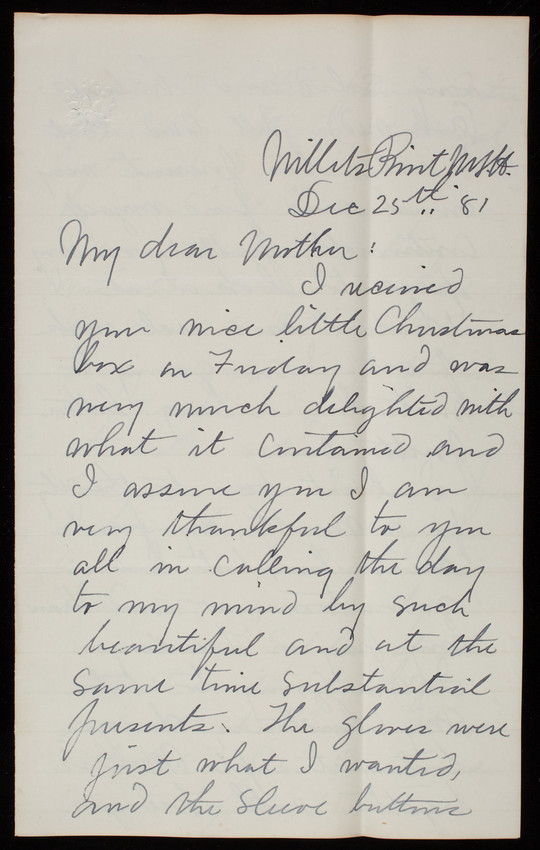 Willets Point N.Y.H.
Dec 25th '81
My dear Mother:
I received
your nice little Christmas
box on Friday and was
very much delighted with
what it contained and
I assure you I am
very thankful to you
all in calling the day
to my mind by such
beautiful and at the
same time substantial
presents. The gloves were
just what I wanted,
and the sleeve buttons